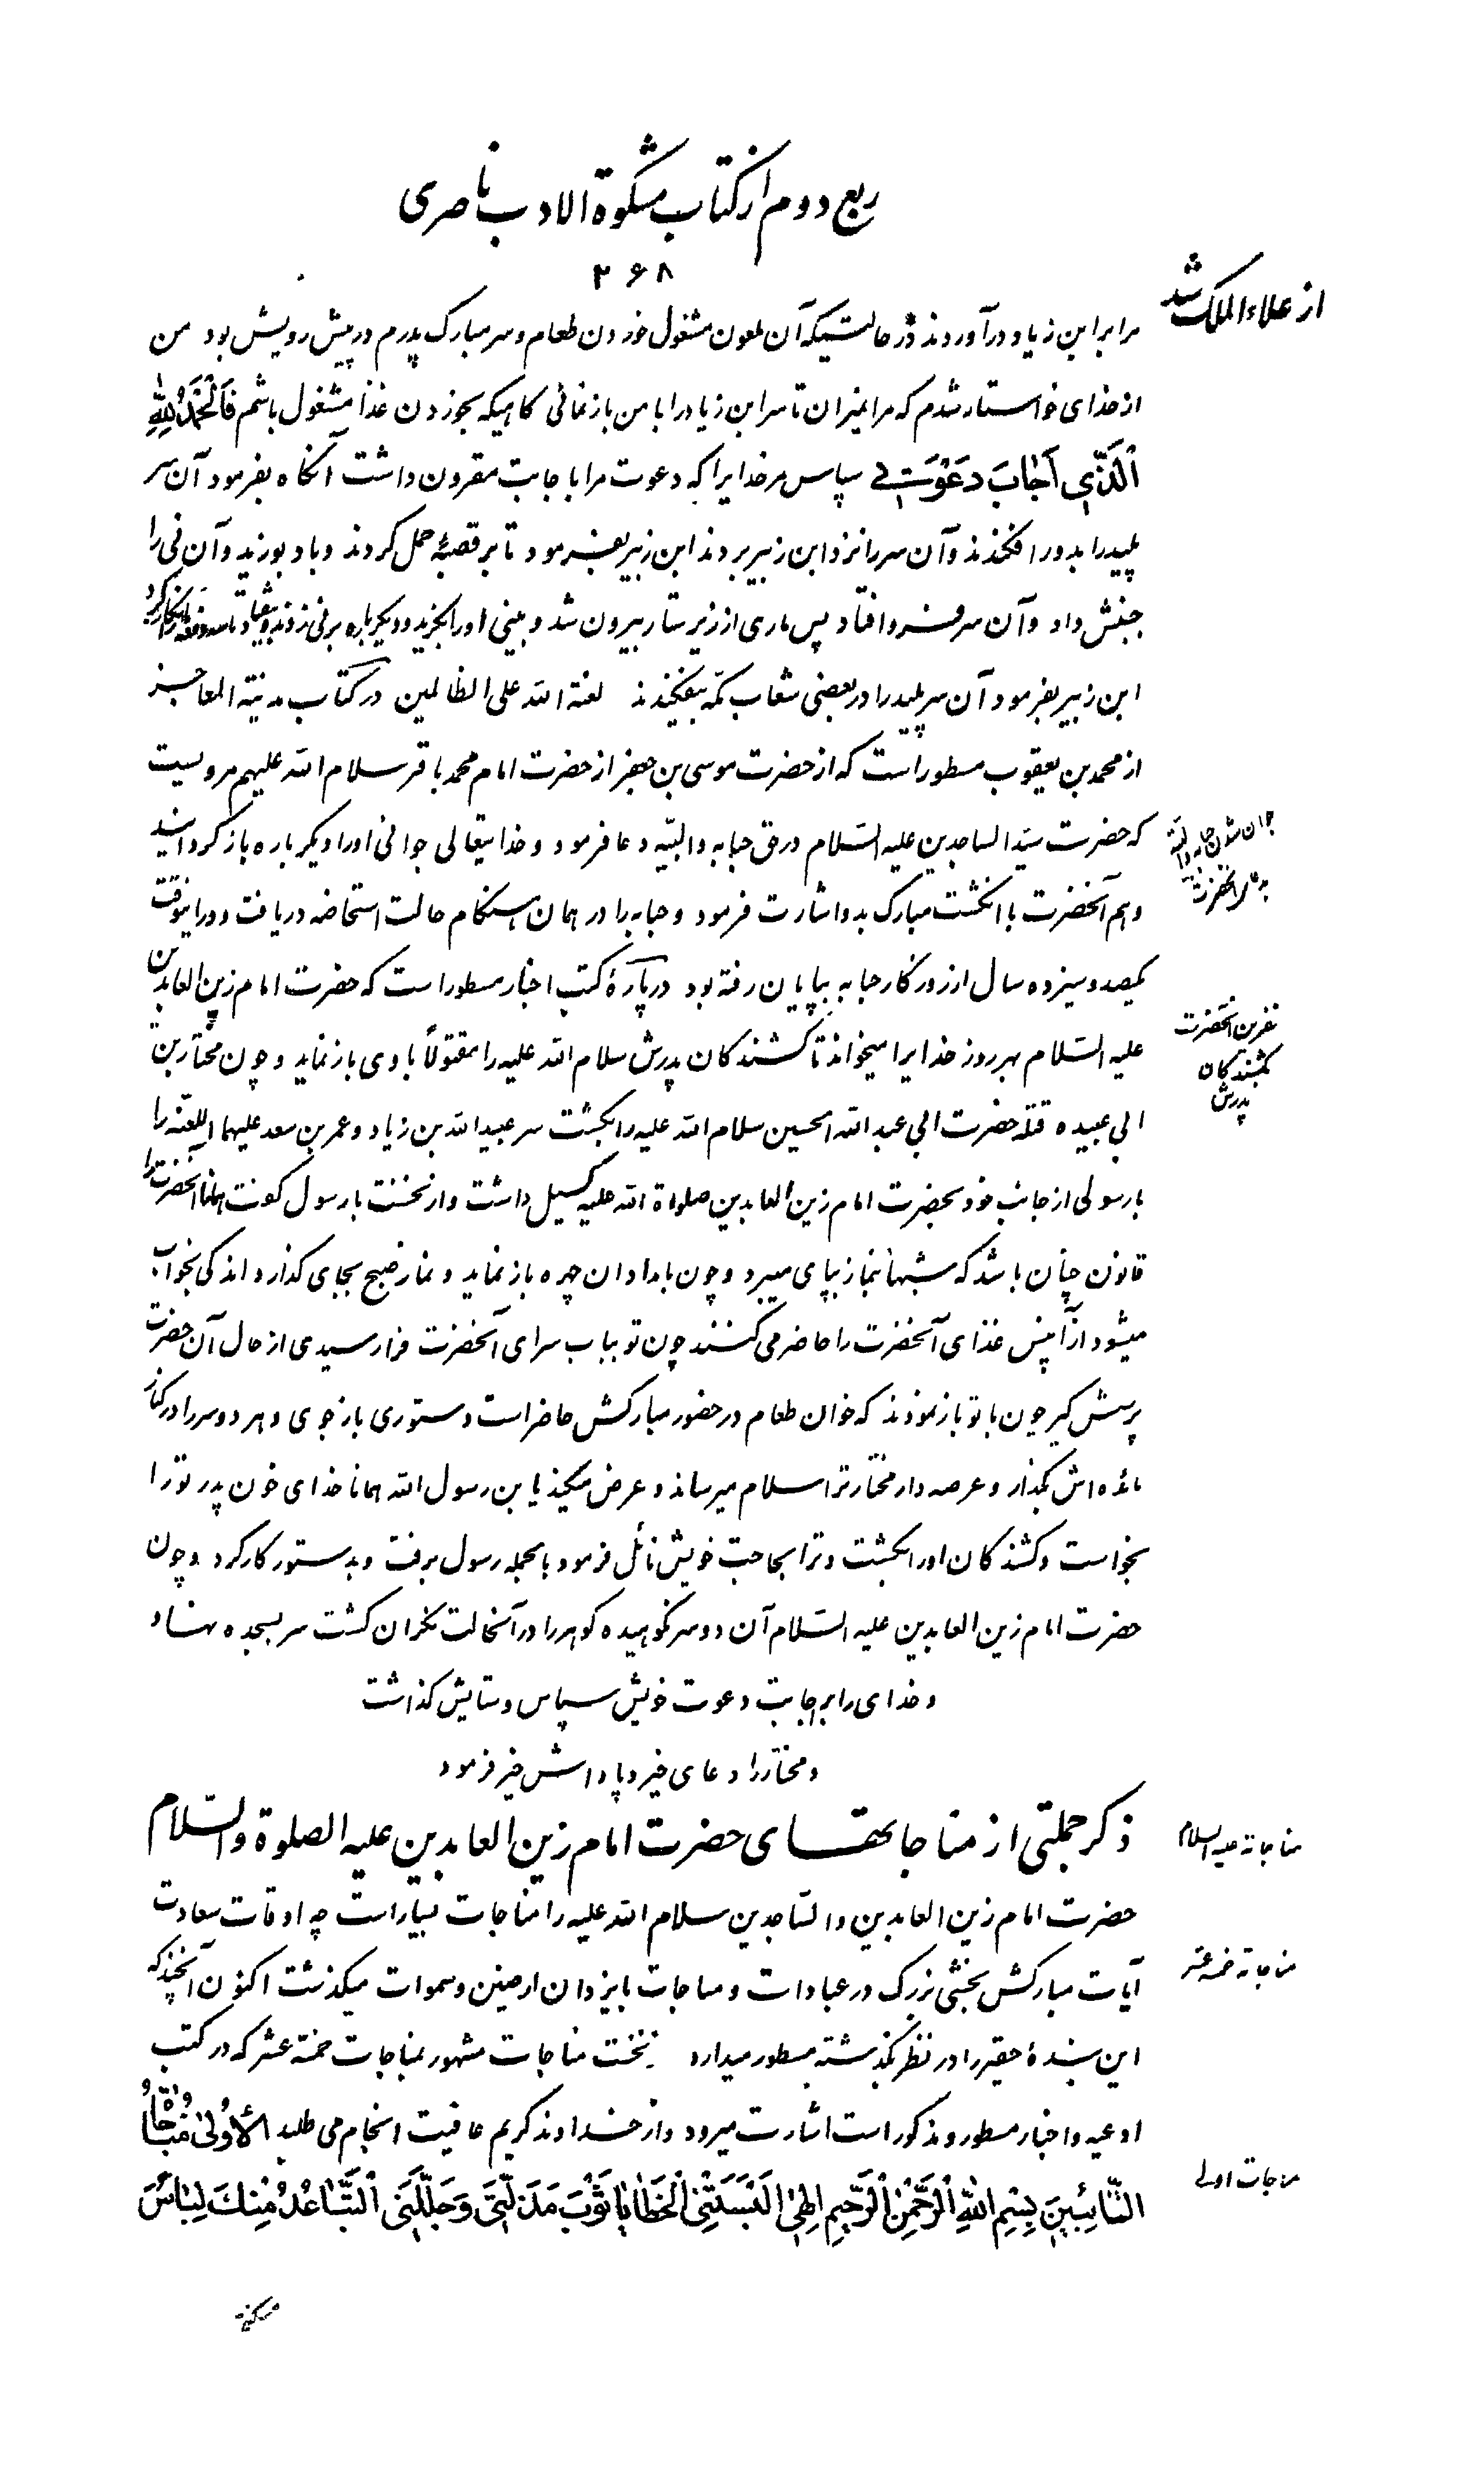 ربع دوم از کتاب مشکوة الادب ناصری
۲۶۸
از علاء الملک شد
مرا بر ابن زیاد درآوردند در حالتیکه آن ملعون مشغول خوردن طعام و سر مبارک پدرم در پیش رویش بود من
از خدای خواستار شدم که مرا نمیران تا سر ابن زیاد را با من باز نمائی گاهیکه بخوردن غذا مشغول باشم فَالْحَمْدُ لِلّٰهِ
اَلَّذِی اَجٰابَ دَعْوَتِی سپاس مر خدایرا که دعوت مرا باجابت مقرون داشت آنگاه بفرمود آن سر
پلید را بدور افکندند و آن سر را نزد ابن زبیر بردند ابن زبیر بفرمود تا بر قصبهٔ حمل کردند و باد بوزید و آن نی را
جنبش داد و آن سر فرو افتاد پس ماری از زیر ستار بیرون شد و بینی او را بگزید و دیگر باره بر نی زدند
ابن زبیر بفرمود آن سر پلید را در بعضی شعاب مکّه بیفکندند لعنة الله علی الظالمین در کتاب مدینة المعاجز
از محمد بن یعقوب مسطور است که از حضرت موسی بن جعفر از حضرت امام محمد باقر سلام الله علیهم مرویست
که حضرت سیّد الساجدین علیه السّلام در حق حبابه والبیّه دعا فرمود و خدایتعالی جوانی او را دیگر باره باز گردانید
جوان شدن حبابه والبیه
بدعای آنحضرت
و هم آنحضرت با انگشت مبارک بدو اشارت فرمود و حبابه را در همان هنگام حالت استحاضه دریافت و در اینوقت
یکصد و سیزده سال از روزگار حبابه بپایان رفته بود در پارهٔ کتب اخبار مسطور است که حضرت امام زین العابدین
نفرین آنحضرت
بکشندگان
پدرش
علیه السّلام بهر روز خدایرا میخواند تا کشندگان پدرش سلام الله علیه را مقتولاً با وی باز نماید و چون مختار بن
ابی عبیده قتلهٔ حضرت ابی عبد الله الحسین سلام الله علیه را بکشت سر عبید الله بن زیاد و عمر بن سعد علیهما اللعنه را
با رسولی از جانب خود بحضرت امام زین العابدین صلواة الله علیه گسیل داشت و از نخست با رسول گفت همانا آنحضرت را
قانون چنان باشد که شبها بنماز بپای میبرد و چون بامدادان چهره باز نماید و نماز صبح بجای گذارد اندکی بخواب
میشود از آن پس غذای آنحضرت را حاضر می کنند چون تو بباب سرای آنحضرت فرا رسیدی از حال آن حضرت
پرسش گیر چون با تو باز نمودند که خوان طعام در حضور مبارکش حاضر است دستوری بازجوی و هر دو سر را در کنار
مائده اش بگذار و عرضه دار مختار ترا سلام میرساند و عرض میکند یا بن رسول الله همانا خدای خون پدر تو را
بخواست و کشندگان او را بکشت و ترا بحاجت خویش نائل فرمود بالجمله رسول برفت و بدستور کار کرد و چون
حضرت امام زین العابدین علیه السّلام آن دو سر نکوهیده گوهر را در آنحالت نگران گشت سر بسجده نهاد
و خدای را بر اجابت دعوت خویش سپاس و ستایش گذاشت
و مختار را دعای خیر و پاداش خیر فرمود
ذکر جملتی از مناجاتهای حضرت امام زین العابدین علیه الصلوة و السّلام
مناجات علیه السلام
حضرت امام زین العابدین و السّاجدین سلام الله علیه را مناجات بسیار است چه اوقات سعادت
آیات مبارکش بخشی بزرگ در عبادات و مناجات با یزدان ارضین و سموات میگذشت اکنون آنچه که
مناجات خمسة عشر
این بندهٔ حقیر را در نظر گذشته مسطور میدارد نخست مناجات مشهور بمناجات خمسة عشر که در کتب
ادعیه و اخبار مسطور و مذکور است اشارت میرود و از خداوند کریم عافیت انجام می طلبد اَلْأُوْلیٰ مُنٰاجٰاةُ
مناجات اولی
التّٰائِبِینَ بِسْمِ اللّٰهِ الرَّحْمٰنِ الرَّحِیمِ اِلٰهِی اَلْبَسَتْنِی الْخَطٰایٰا ثَوْبَ مَذَلَّتِی وَجَلَّلَنِی اَلتَّبٰاعُدُ مِنْكَ لِبٰاسَ
مسکنتی